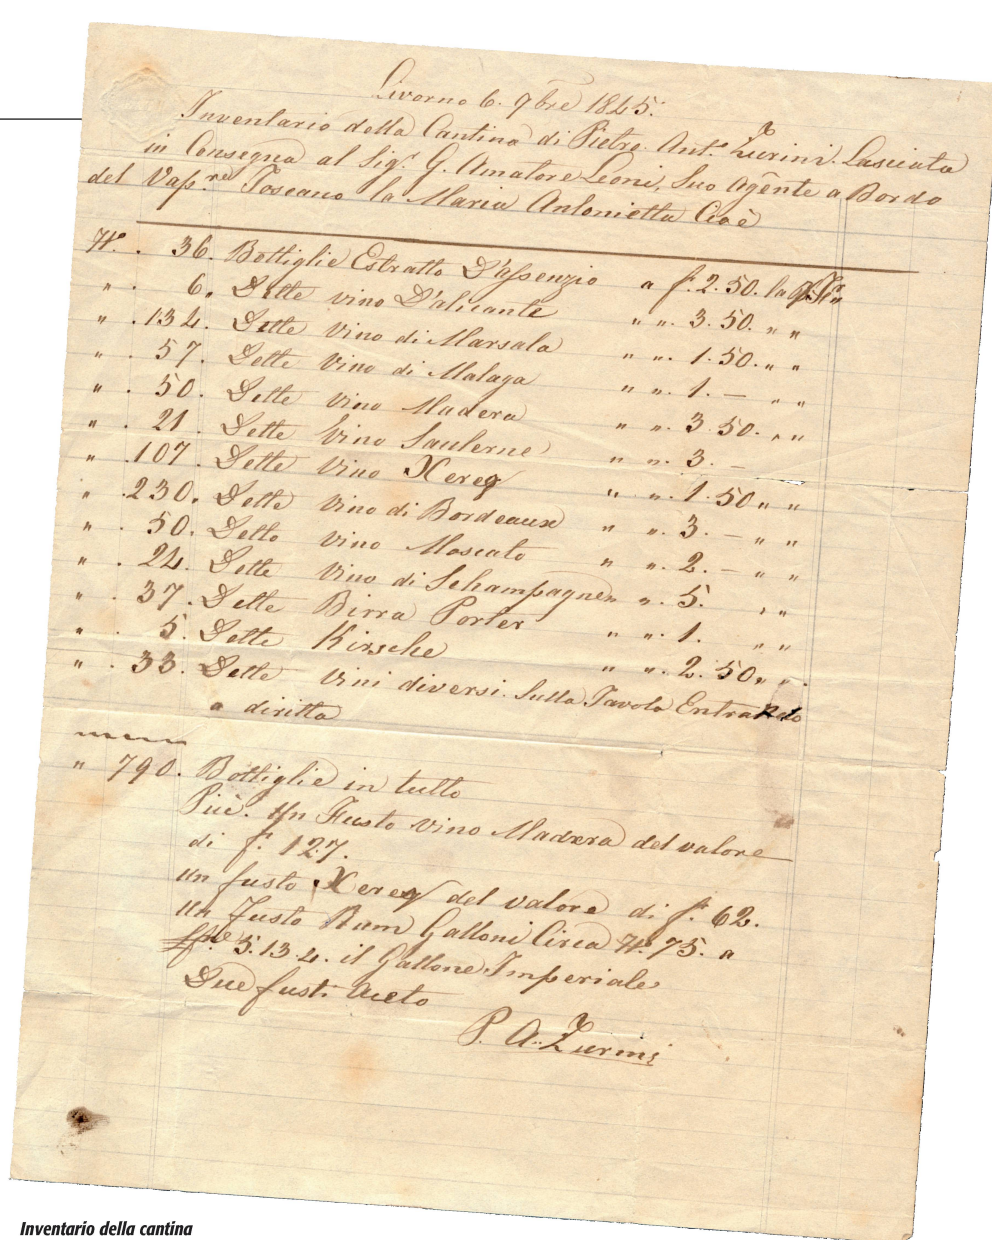 Livorno 6. 9bre 1845.
Inventario della Cantina di Pietro Anto. Zurini. Lasciata
in Consegna al Sigr. G. Amatore Leoni, Suo Agente a Bordo
del Vapre Toscano la Maria Antonietta Cioè
No. . 36. Bottiglie Estratto D'assenzio a f. 2.50. la
" . 6. Dette vino D'alicante " ". 3.50. " "
" . 134. Dette Vino di Marsala " ". 1.50. " "
" . 57. Dette Vino di Malaga " ". 1. — " "
" . 50. Dette Vino Madera " ". 3.50. " "
" . 21. Dette Vino Sauterne " ". 3. —
" . 107. Dette Vino Xereq " ". 1.50 " "
" . 230. Dette Vino di Bordeaux " ". 3. — " "
" . 50. Dette Vino Moscato " ". 2. — " "
" . 24. Dette Vino di Schampagne " ". 5. " "
" . 37. Dette Birra Porter " ". 1. " "
" . 5. Dette Kirsche " ". 2.50. " "
" . 33. Dette Vini diversi Sulla Tavola Entrando
a diritta
" 790. Bottiglie in tutto
Più. Un Fusto vino Madera del valore
di f. 127.
Un fusto Xereq del valore di f. 62.
Un Fusto Rum Galloni Circa No. 75. a
5.13.4. il Gallone Imperiale
Due fusti Aceto
P. A. Zurini
Inventario della cantina